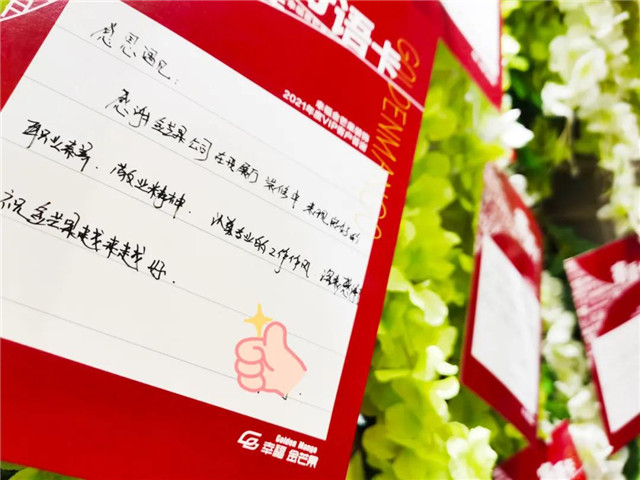 语卡
GOLDENMANGO
2021年度VIP客户
感恩遇见:
感谢金芒果公司在装修中表现出的
职业素养、敬业精神、认真专业的工作作风 深表感
祝金芒果越来越好.
Golden Mango
幸福 金芒果